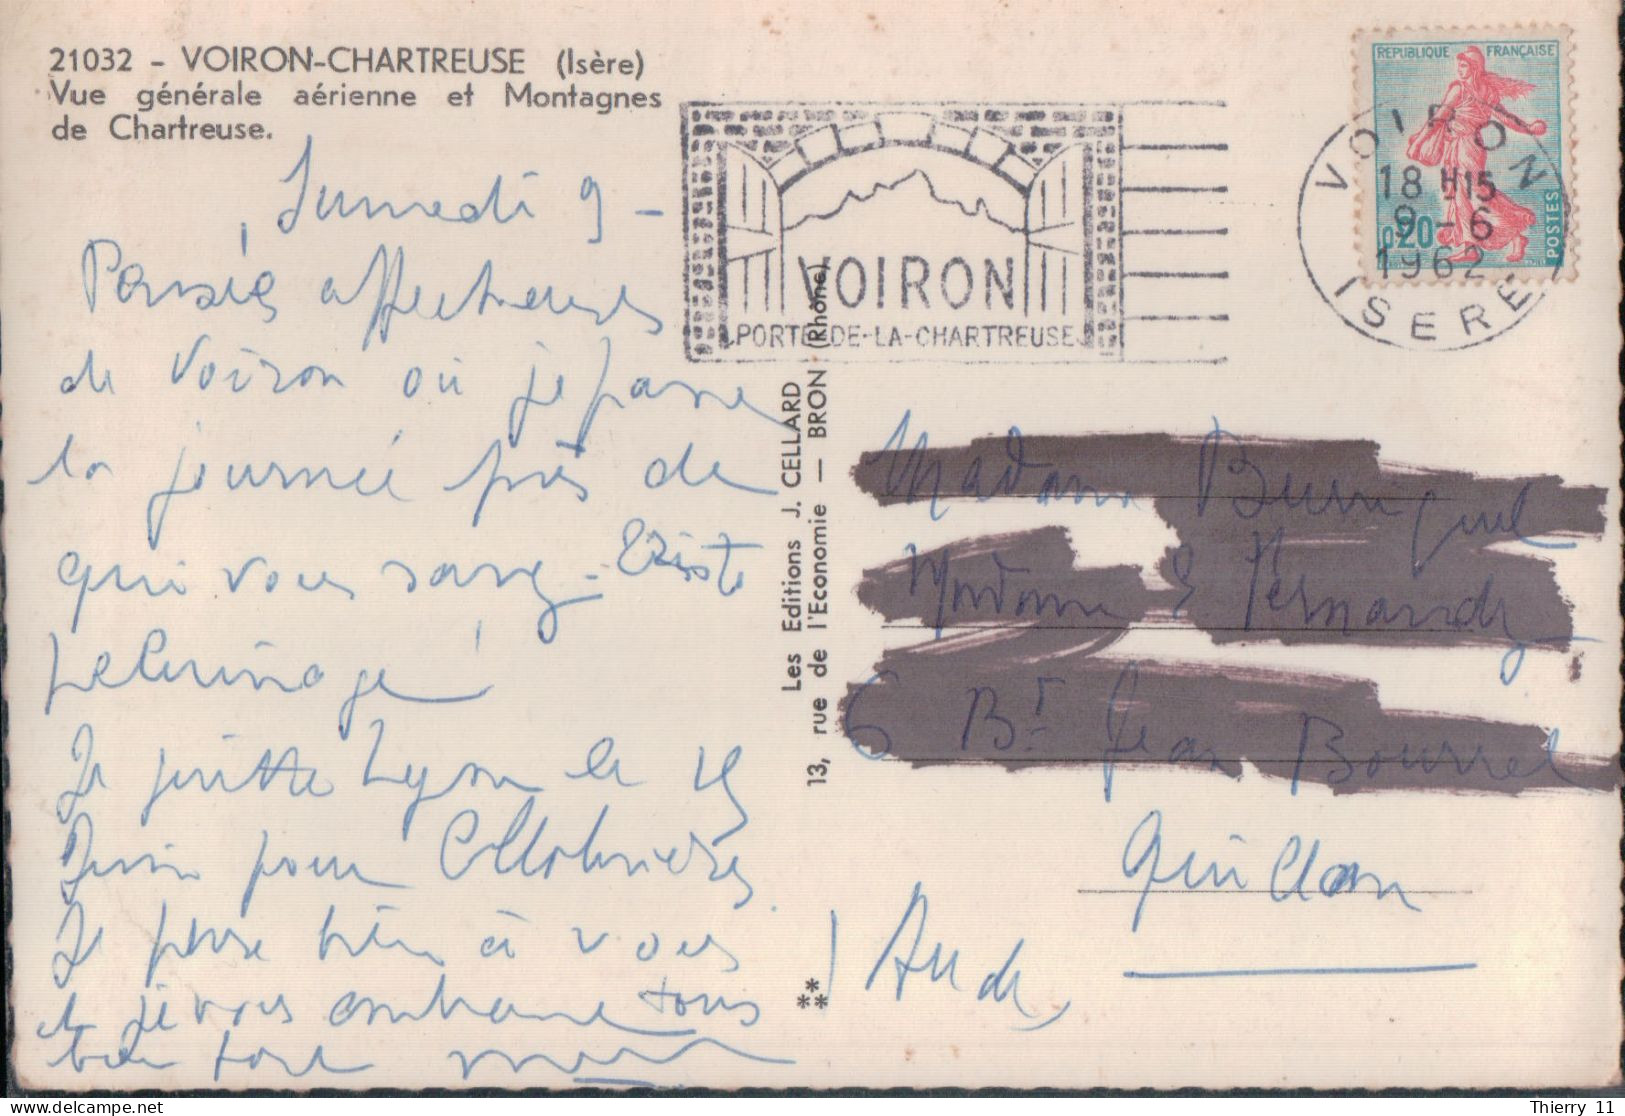 21032 - VOIRON-CHARTREUSE (Isère)
Vue générale aérienne et Montagnes
de Chartreuse.
REPUBLIQUE FRANÇAISE
0,20
POSTES
VOIRON
18 H15
9 - 6
1962
ISERE
VOIRON
PORTE-DE-LA-CHARTREUSE
Samedi 9 -
Pensées affectueuses
de Voiron où je passe
la journée près de
qui vous savez - triste
pelerinage!
Je quitte Lyon le 19
Juin pour Collobrières
Je pense bien à vous
et je vous embrasse tous
bien fort
Les Editions J. CELLARD
13, rue de l'Economie — BRON (Rhône)
**
**
Madame
Madame
6 Bd Jean Bourrel
Quillan
Aude
Thierry 11